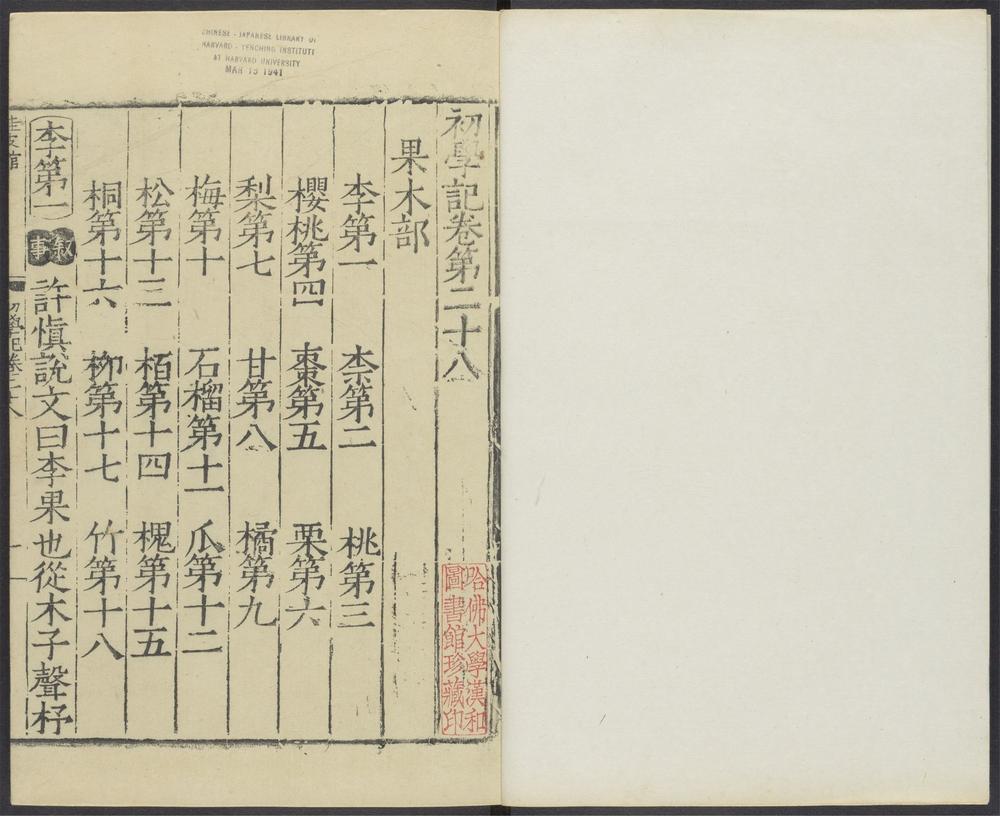 CHINESE - JAPANESE LIBRARY OF
HARVARD - YENCHING INSTITUTE
AT HARVARD UNIVERSITY
MAR 15 1941
初學記卷第二十八
哈佛大學漢和
圖書館珍藏印
果木部
李第一 柰第二 桃第三
櫻桃第四 棗第五 栗第六
梨第七 甘第八 橘第九
梅第十 石榴第十一 瓜第十二
松第十三 栢第十四 槐第十五
桐第十六 柳第十七 竹第十八
李第一 敘事 許慎說文曰李果也從木子聲杍
初學記卷二十八